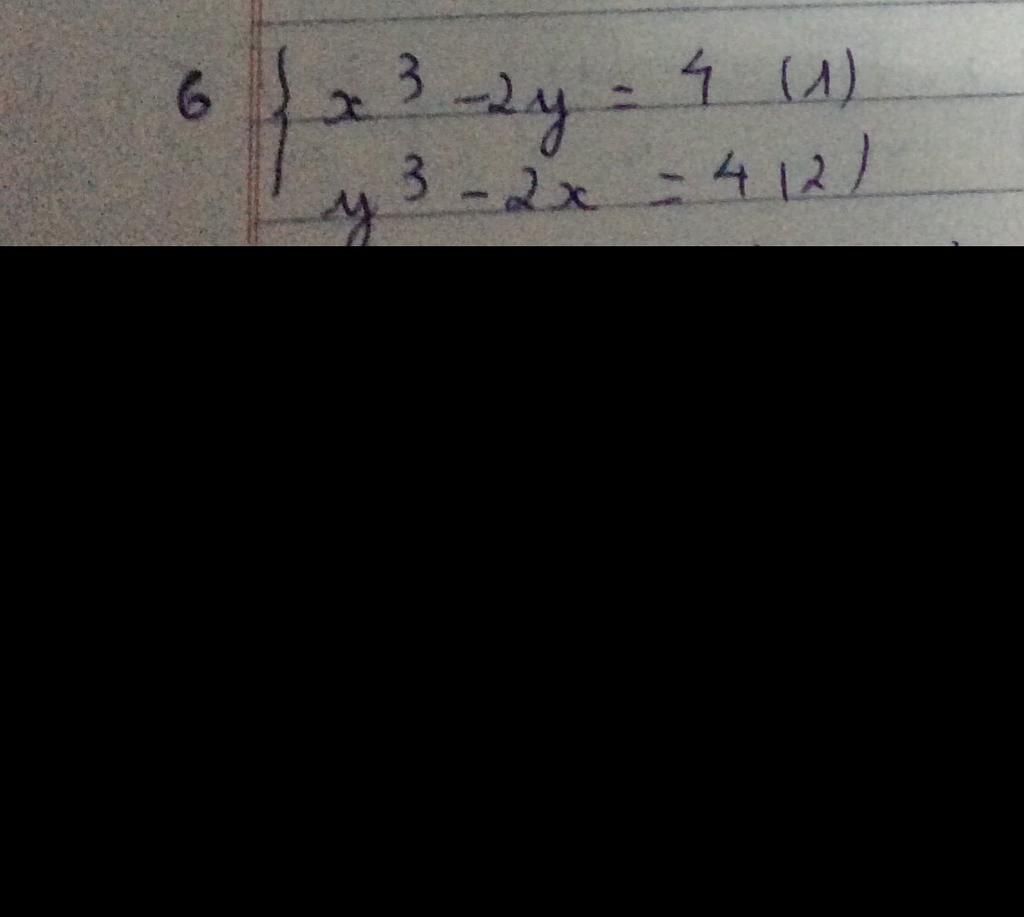 6 { x³ - 2y = 4 (1)
y³ - 2x = 4 (2)